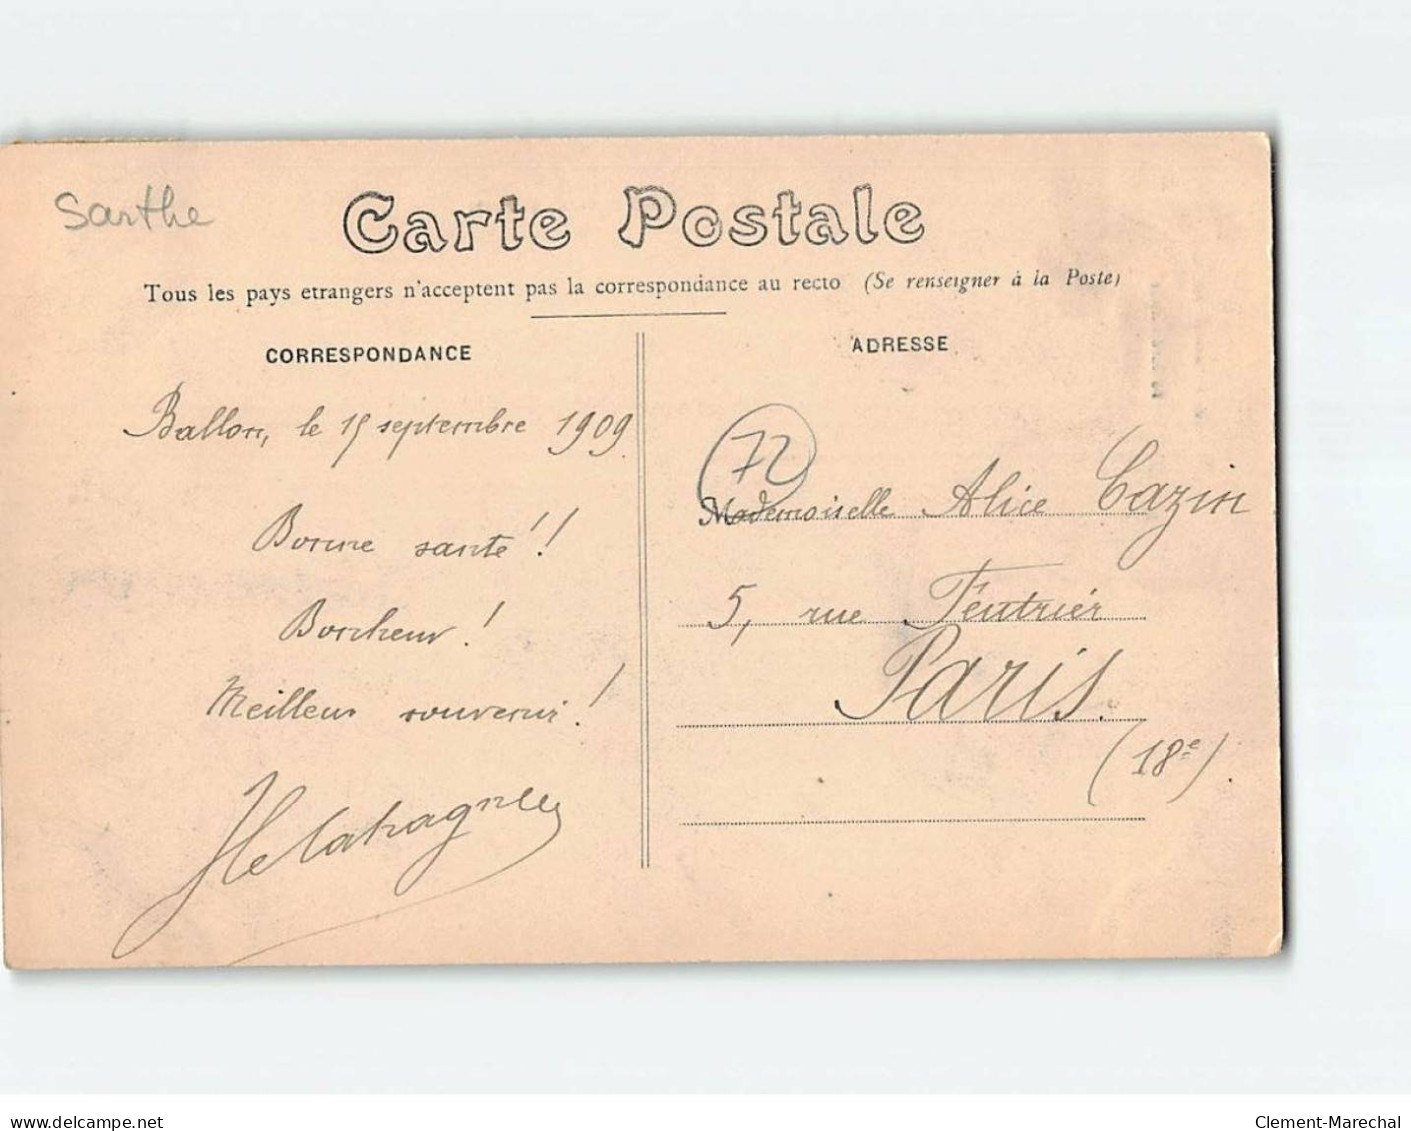 Sarthe
Carte Postale
Tous les pays etrangers n'acceptent pas la correspondance au recto (Se renseigner à la Poste)
CORRESPONDANCE
Ballon, le 15 septembre 1909.
Bonne santé!!
Bonheur!
Meilleur souvenir!
ADRESSE
72
Mademoiselle Alice Cazin
5, rue Feutrier
Paris.
(18e).
delcampe.net
Clement-Marechal